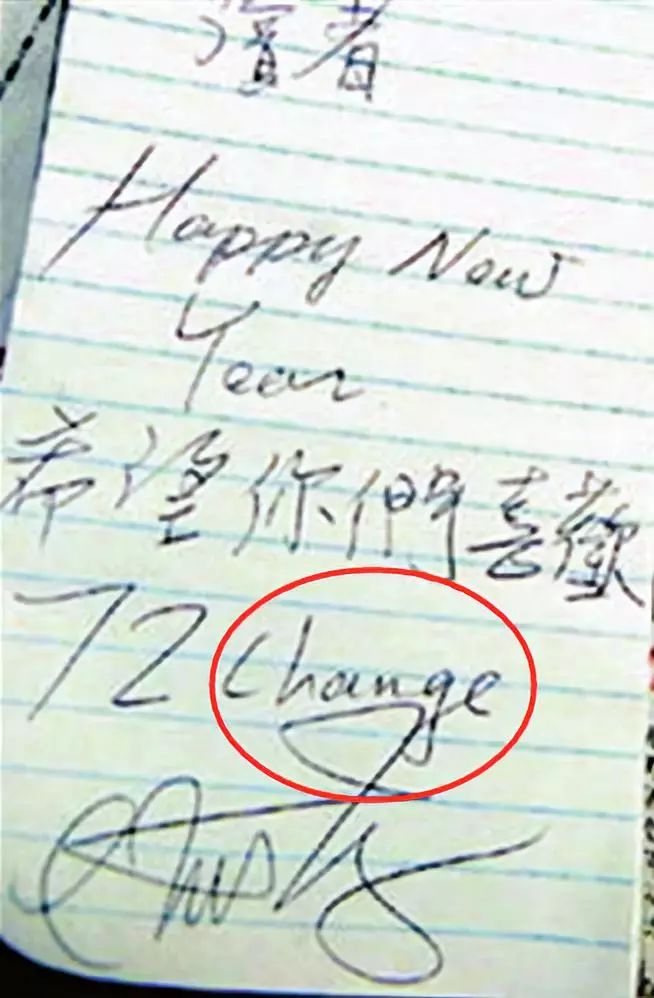 者
Happy New
Year
希望你們喜歡
72 Change